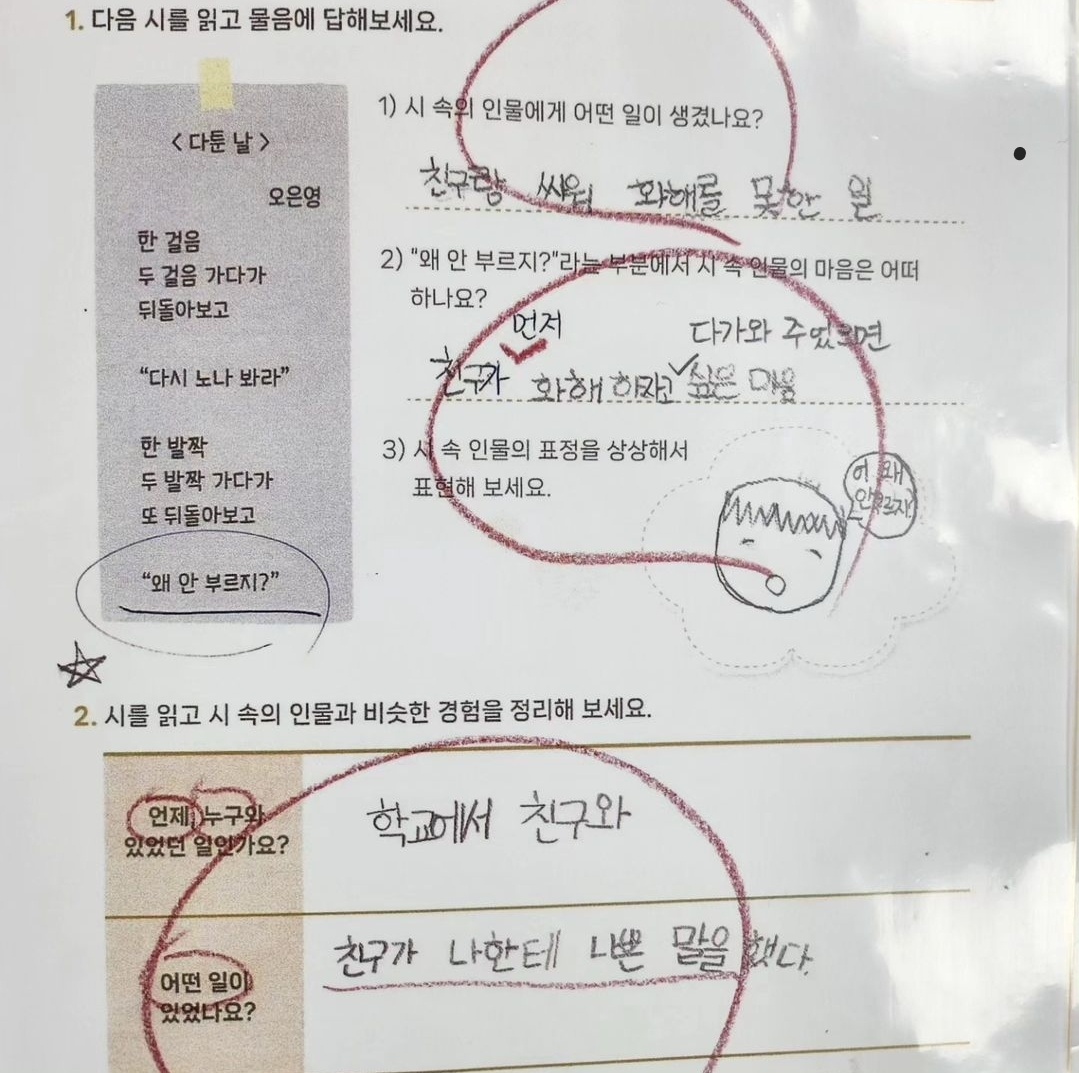 1. 다음 시를 읽고 물음에 답해보세요.
< 다툰 날 >
오은영
한 걸음
두 걸음 가다가
뒤돌아보고
“다시 노나 봐라”
한 발짝
두 발짝 가다가
또 뒤돌아보고
“왜 안 부르지?”
1) 시 속의 인물에게 어떤 일이 생겼나요?
친구랑 싸워 화해를 못한 일
2) “왜 안 부르지?”라는 부분에서 시 속 인물의 마음은 어떠
하나요?
먼저 다가와 주었으면
친구가 화해 하자고 싶은 마음
3) 시 속 인물의 표정을 상상해서
표현해 보세요.
어 왜
안부르지
2. 시를 읽고 시 속의 인물과 비슷한 경험을 정리해 보세요.
언제, 누구와
있었던 일인가요?
학교에서 친구와
어떤 일이
있었나요?
친구가 나한테 나쁜 말을 했다.